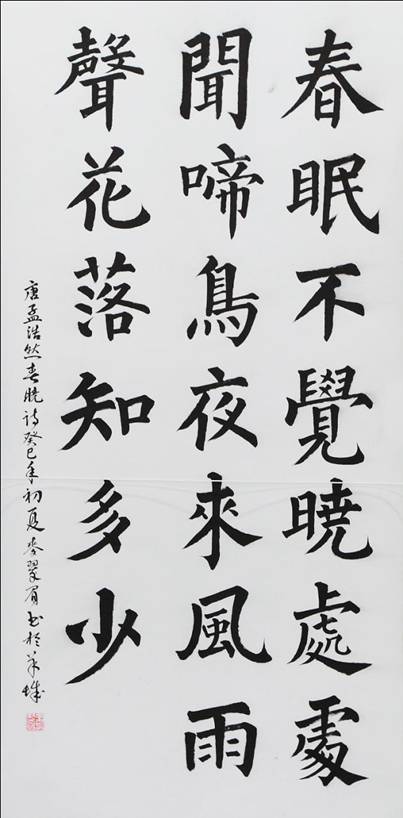 春眠不覺曉處處
聞啼鳥夜來風雨
聲花落知多少
唐孟浩然春晓诗癸巳年初夏翠眉书於羊城